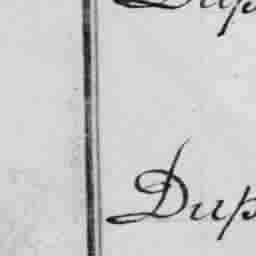 Dup
Dup